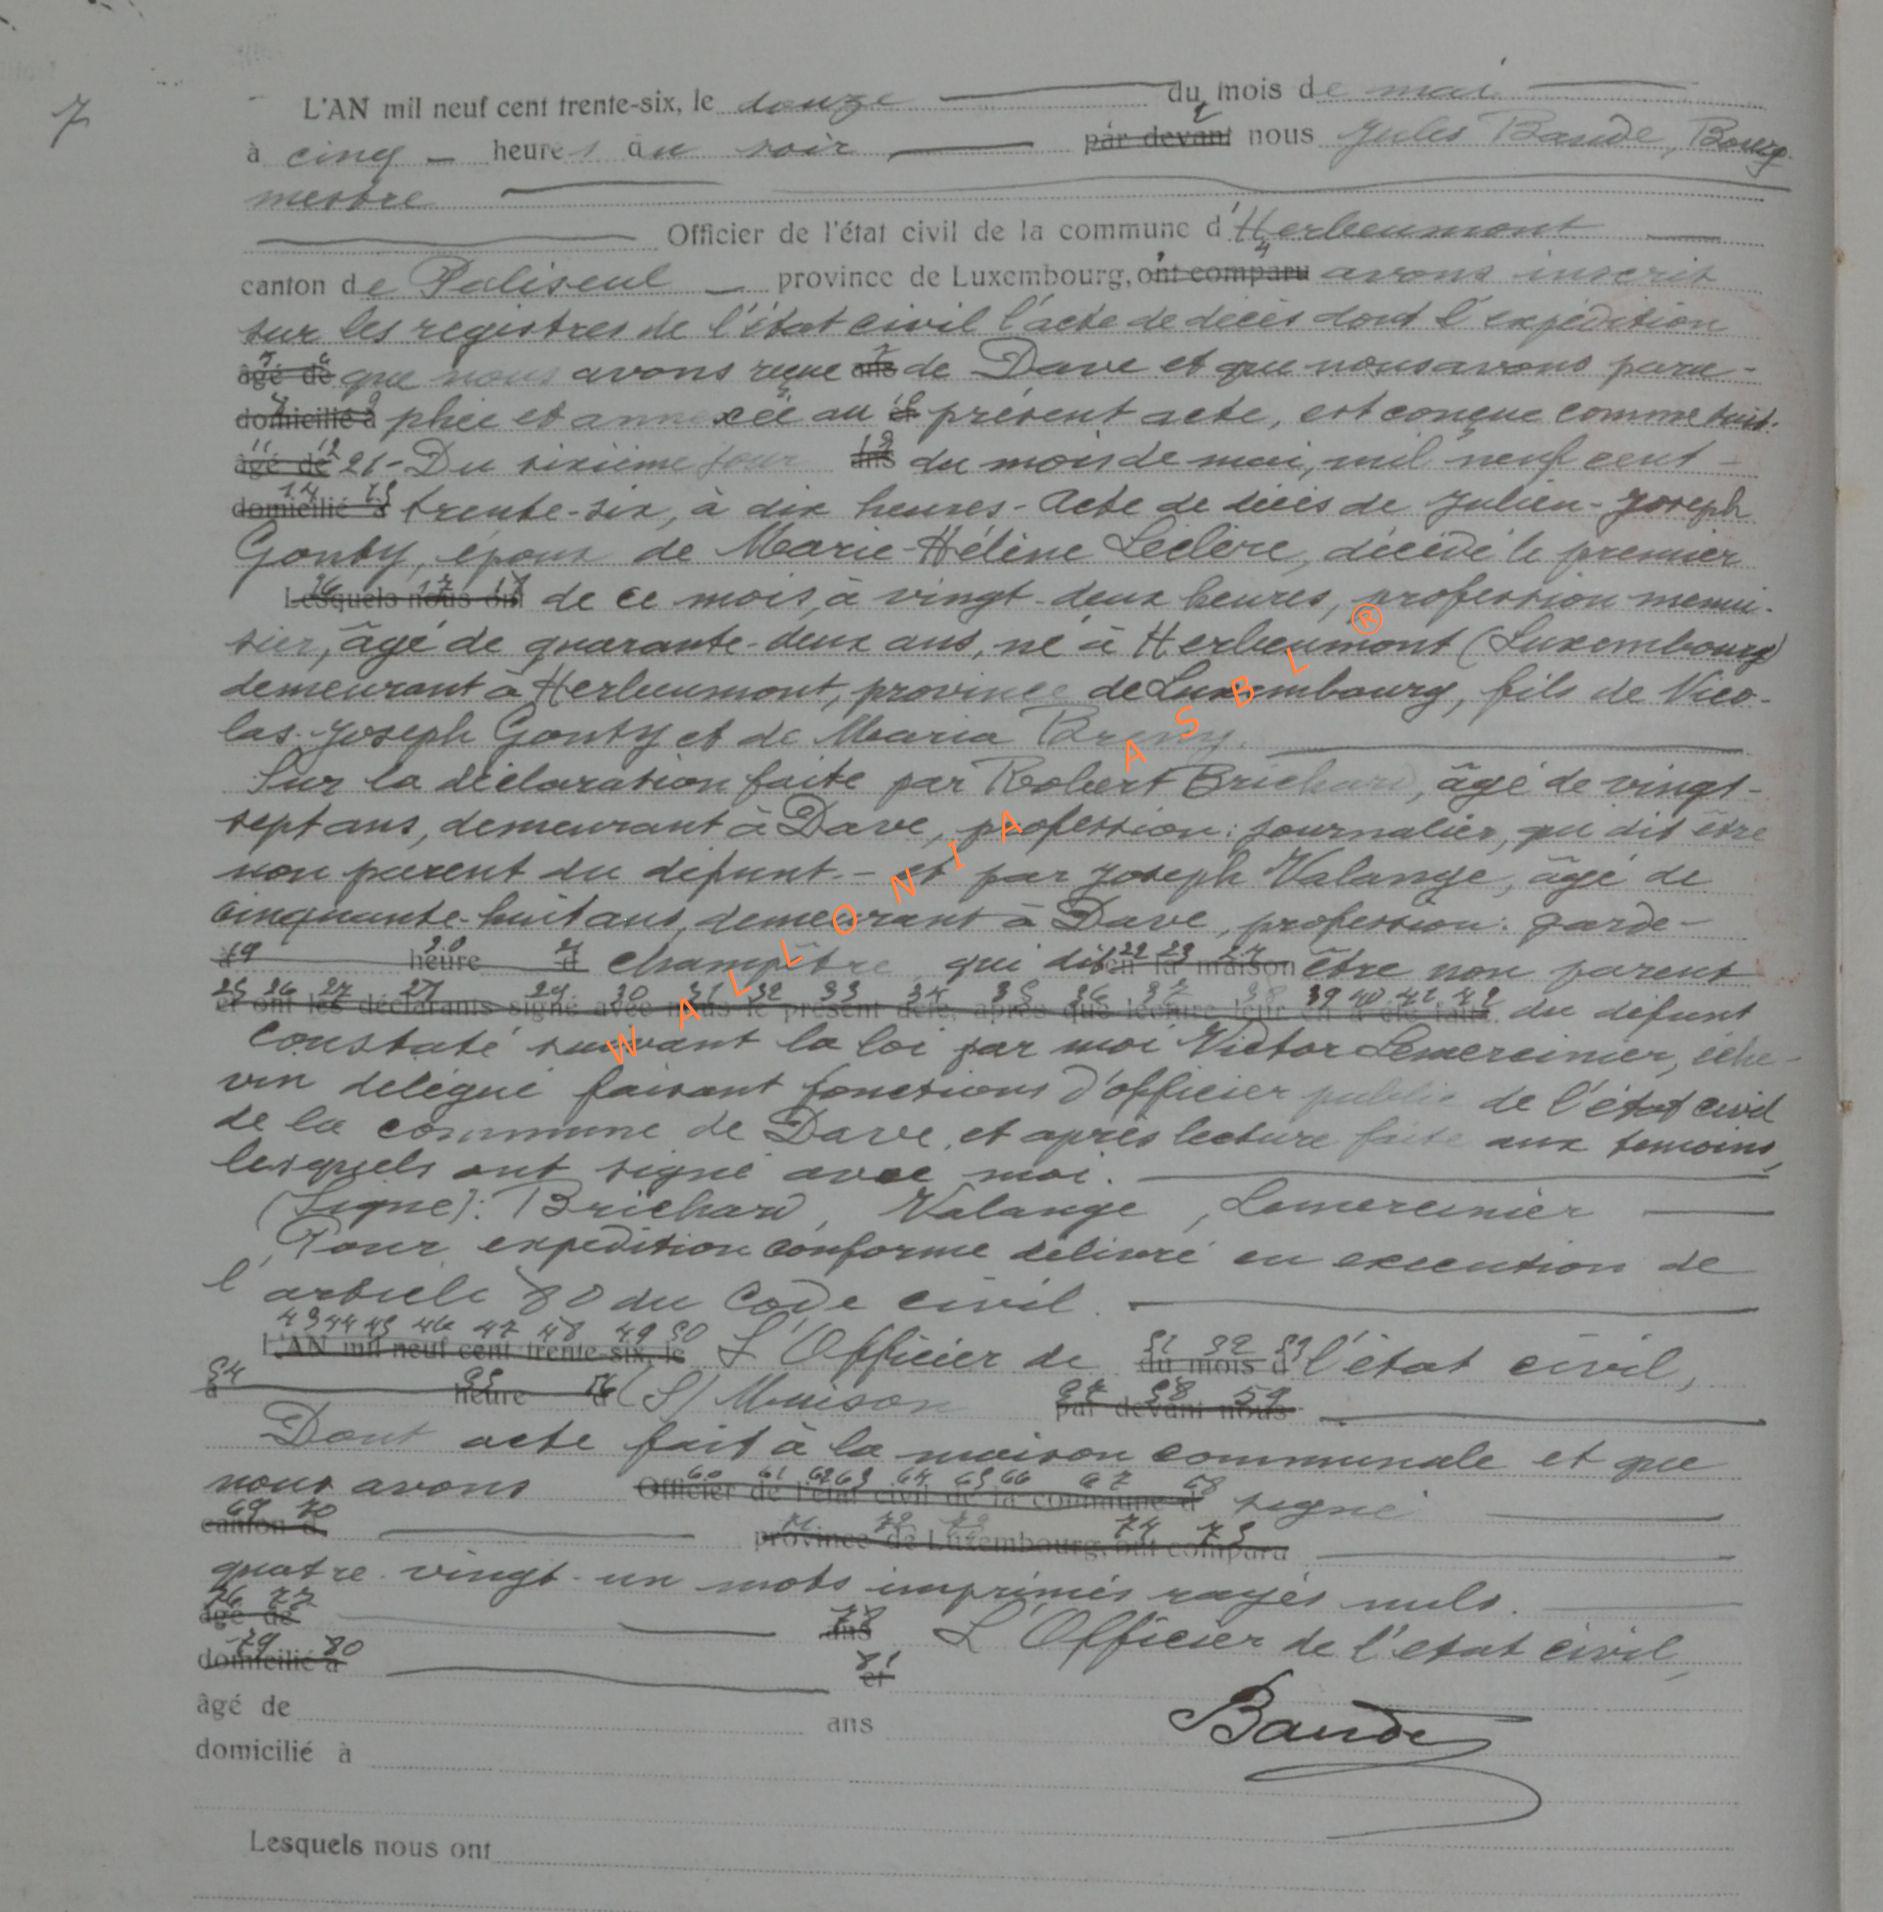 7
L'AN mil neuf cent trente-six, le douze du mois de mai
à cinq heures du soir par devant nous Jules Baude, Bourg-
mestre
Officier de l'état civil de la commune d'Herbeumont
canton de Paliseul province de Luxembourg, ont comparu avons inscrit
sur les registres de l'état civil l'acte de décès dont l'expédition
âgé de que nous avons reçue ans de Dave et que nous avons para-
domicilié à phée et annexée au et présent acte, est conçue comme suit:
âgé de 21 - Du sixième jour ans du mois de mai, mil neuf cent -
domicilié à trente-six, à dix heures - Acte de décès de Julien - Joseph
Gonty, époux de Marie-Hélène Leclère, décédé le premier
Lesquels nous ont de ce mois, à vingt-deux heures, profession menui-
sier, âgé de quarante-deux ans, né à Herbeumont (Luxembourg)
demeurant à Herbeumont, province de Luxembourg, fils de Nico-
las-Joseph Gonty et de Maria Breny.
Sur la déclaration faite par Robert Brichard, âgé de vingt-
sept ans, demeurant à Dave, profession: journalier, qui dit être
non parent du défunt. - et par Joseph Valange, âgé de
cinquante-huit ans, demeurant à Dave, profession: garde-
à heure d champêtre, qui dit en la maison être non parent
et ont les déclarants signé avec nous le présent acte, après que lecture leur en a été faite. du défunt
Constaté suivant la loi par moi Victor Lemercinier, éche-
vin délégué faisant fonctions d'officier public de l'état civil
de la commune de Dave, et après lecture faite aux témoins,
lesquels ont signé avec moi.
(Signé): Brichard, Valange, Lemercinier
Pour expédition conforme délivré en exécution de
l'article 80 du Code civil.
L'AN mil neuf cent trente-six, le L'Officier de du mois d l'état civil,
à heure d (S) Muison par devant nous
Dont acte fait à la maison communale et que
nous avons Officier de l'état civil de la commune d signé
canton d province de Luxembourg, ont comparu
quatre-vingt-un mots imprimés rayés nuls.
âgé de ans L'Officier de l'état civil,
domicilié à et
âgé de ans Baude
domicilié à
Lesquels nous ont
WALLONIA ASBL ®